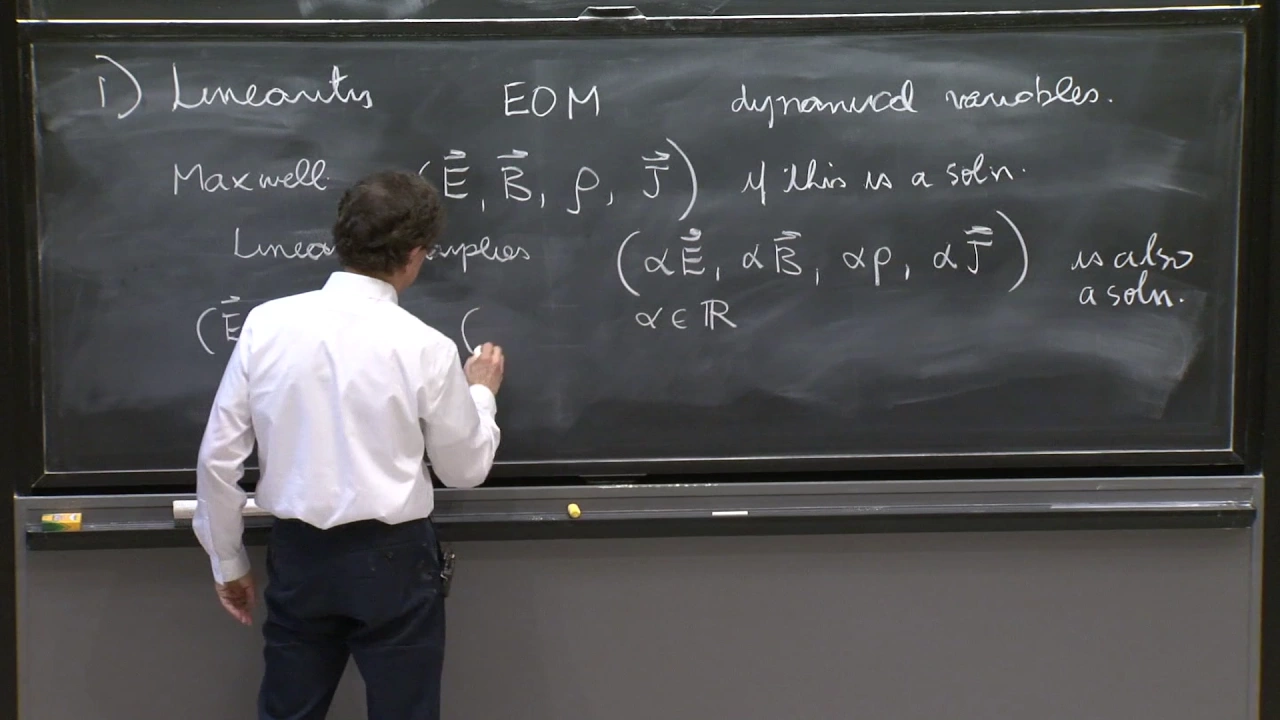 i) Linearity EOM dynamical variables.
Maxwell. (E⃗, B⃗, ρ, J⃗) if this is a soln.
(αE⃗, αB⃗, αρ, αJ⃗) is also
a soln.
α ∈ ℝ
(E⃗ (